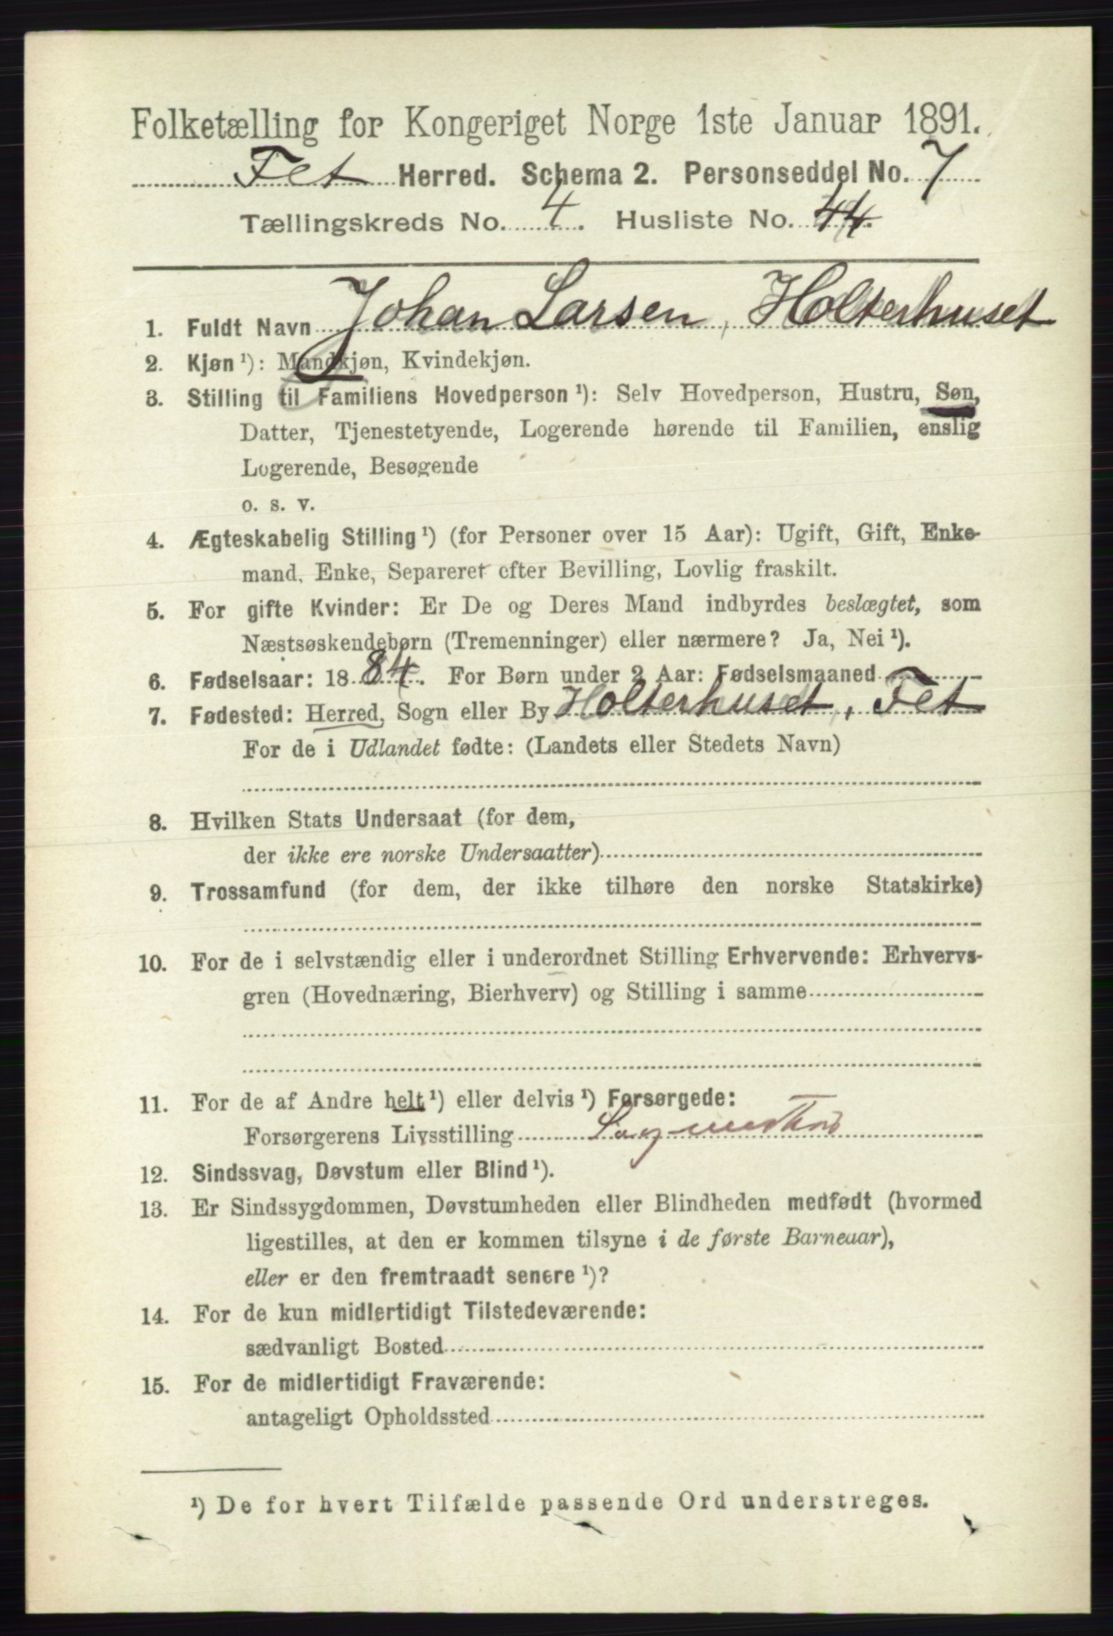 Folketælling for Kongeriget Norge 1ste Januar 1891.
Fet Herred. Schema 2. Personseddel No. 7
Tællingskreds No. 4. Husliste No. 44.
1. Fuldt Navn Johan Larsen, Holterhuset
2. Kjøn ¹): Mandkjøn, Kvindekjøn.
3. Stilling til Familiens Hovedperson ¹): Selv Hovedperson, Hustru, Søn,
Datter, Tjenestetyende, Logerende hørende til Familien, enslig
Logerende, Besøgende
o. s. v.
4. Ægteskabelig Stilling ¹) (for Personer over 15 Aar): Ugift, Gift, Enke-
mand, Enke, Separeret efter Bevilling, Lovlig fraskilt.
5. For gifte Kvinder: Er De og Deres Mand indbyrdes beslægtet, som
Næstsøskendebørn (Tremenninger) eller nærmere? Ja, Nei ¹).
6. Fødselsaar: 1884. For Børn under 2 Aar: Fødselsmaaned
7. Fødested: Herred, Sogn eller By Holterhuset, Fet
For de i Udlandet fødte: (Landets eller Stedets Navn)
8. Hvilken Stats Undersaat (for dem,
der ikke ere norske Undersaatter)
9. Trossamfund (for dem, der ikke tilhøre den norske Statskirke)
10. For de i selvstændig eller i underordnet Stilling Erhvervende: Erhvervs-
gren (Hovednæring, Bierhverv) og Stilling i samme
11. For de af Andre helt ¹) eller delvis ¹) Forsørgede:
Forsørgerens Livsstilling
12. Sindssvag, Døvstum eller Blind ¹).
13. Er Sindssygdommen, Døvstumheden eller Blindheden medfødt (hvormed
ligestilles, at den er kommen tilsyne i de første Barneaar),
eller er den fremtraadt senere ¹)?
14. For de kun midlertidigt Tilstedeværende:
sædvanligt Bosted
15. For de midlertidigt Fraværende:
antageligt Opholdssted
¹) De for hvert Tilfælde passende Ord understreges.